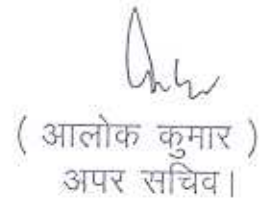 ( आलोक कुमार )
अपर सचिव।